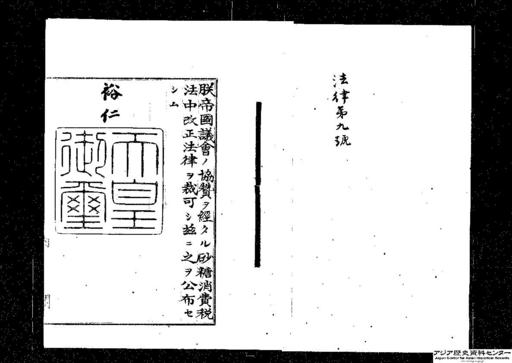 法律第九號
朕帝國議會ノ協贊ヲ經タル砂糖消費稅
法中改正法律ヲ裁可シ茲ニ之ヲ公布セ
シム
裕仁
天皇
御璽
内閣
アジア歴史資料センター
Japan Center for Asian Historical Records